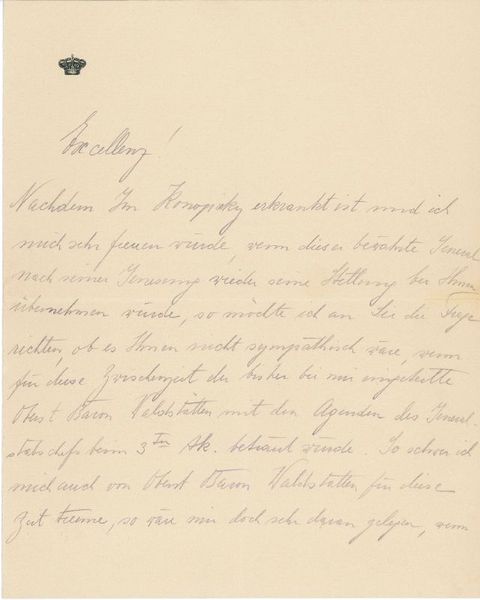 Excellenz!
Nachdem Gm Konopicky erkrankt ist und ich
mich sehr freuen würde, wenn dieser bewährte General
nach seiner Genesung wieder seine Stellung bei Ihnen
übernehmen würde, so möchte ich an Sie die Frage
richten, ob es Ihnen nicht sympathisch wäre, wenn
für diese Zwischenzeit der bisher bei mir eingeteilte
Oberst Baron Waldstätten mit den Agenden des General-
stabschefs beim 3ten Ak. betraut würde. So schwer ich
mich auch von Oberst Baron Waldstätten für diese
Zeit trenne, so wäre mir doch sehr daran gelegen, wenn